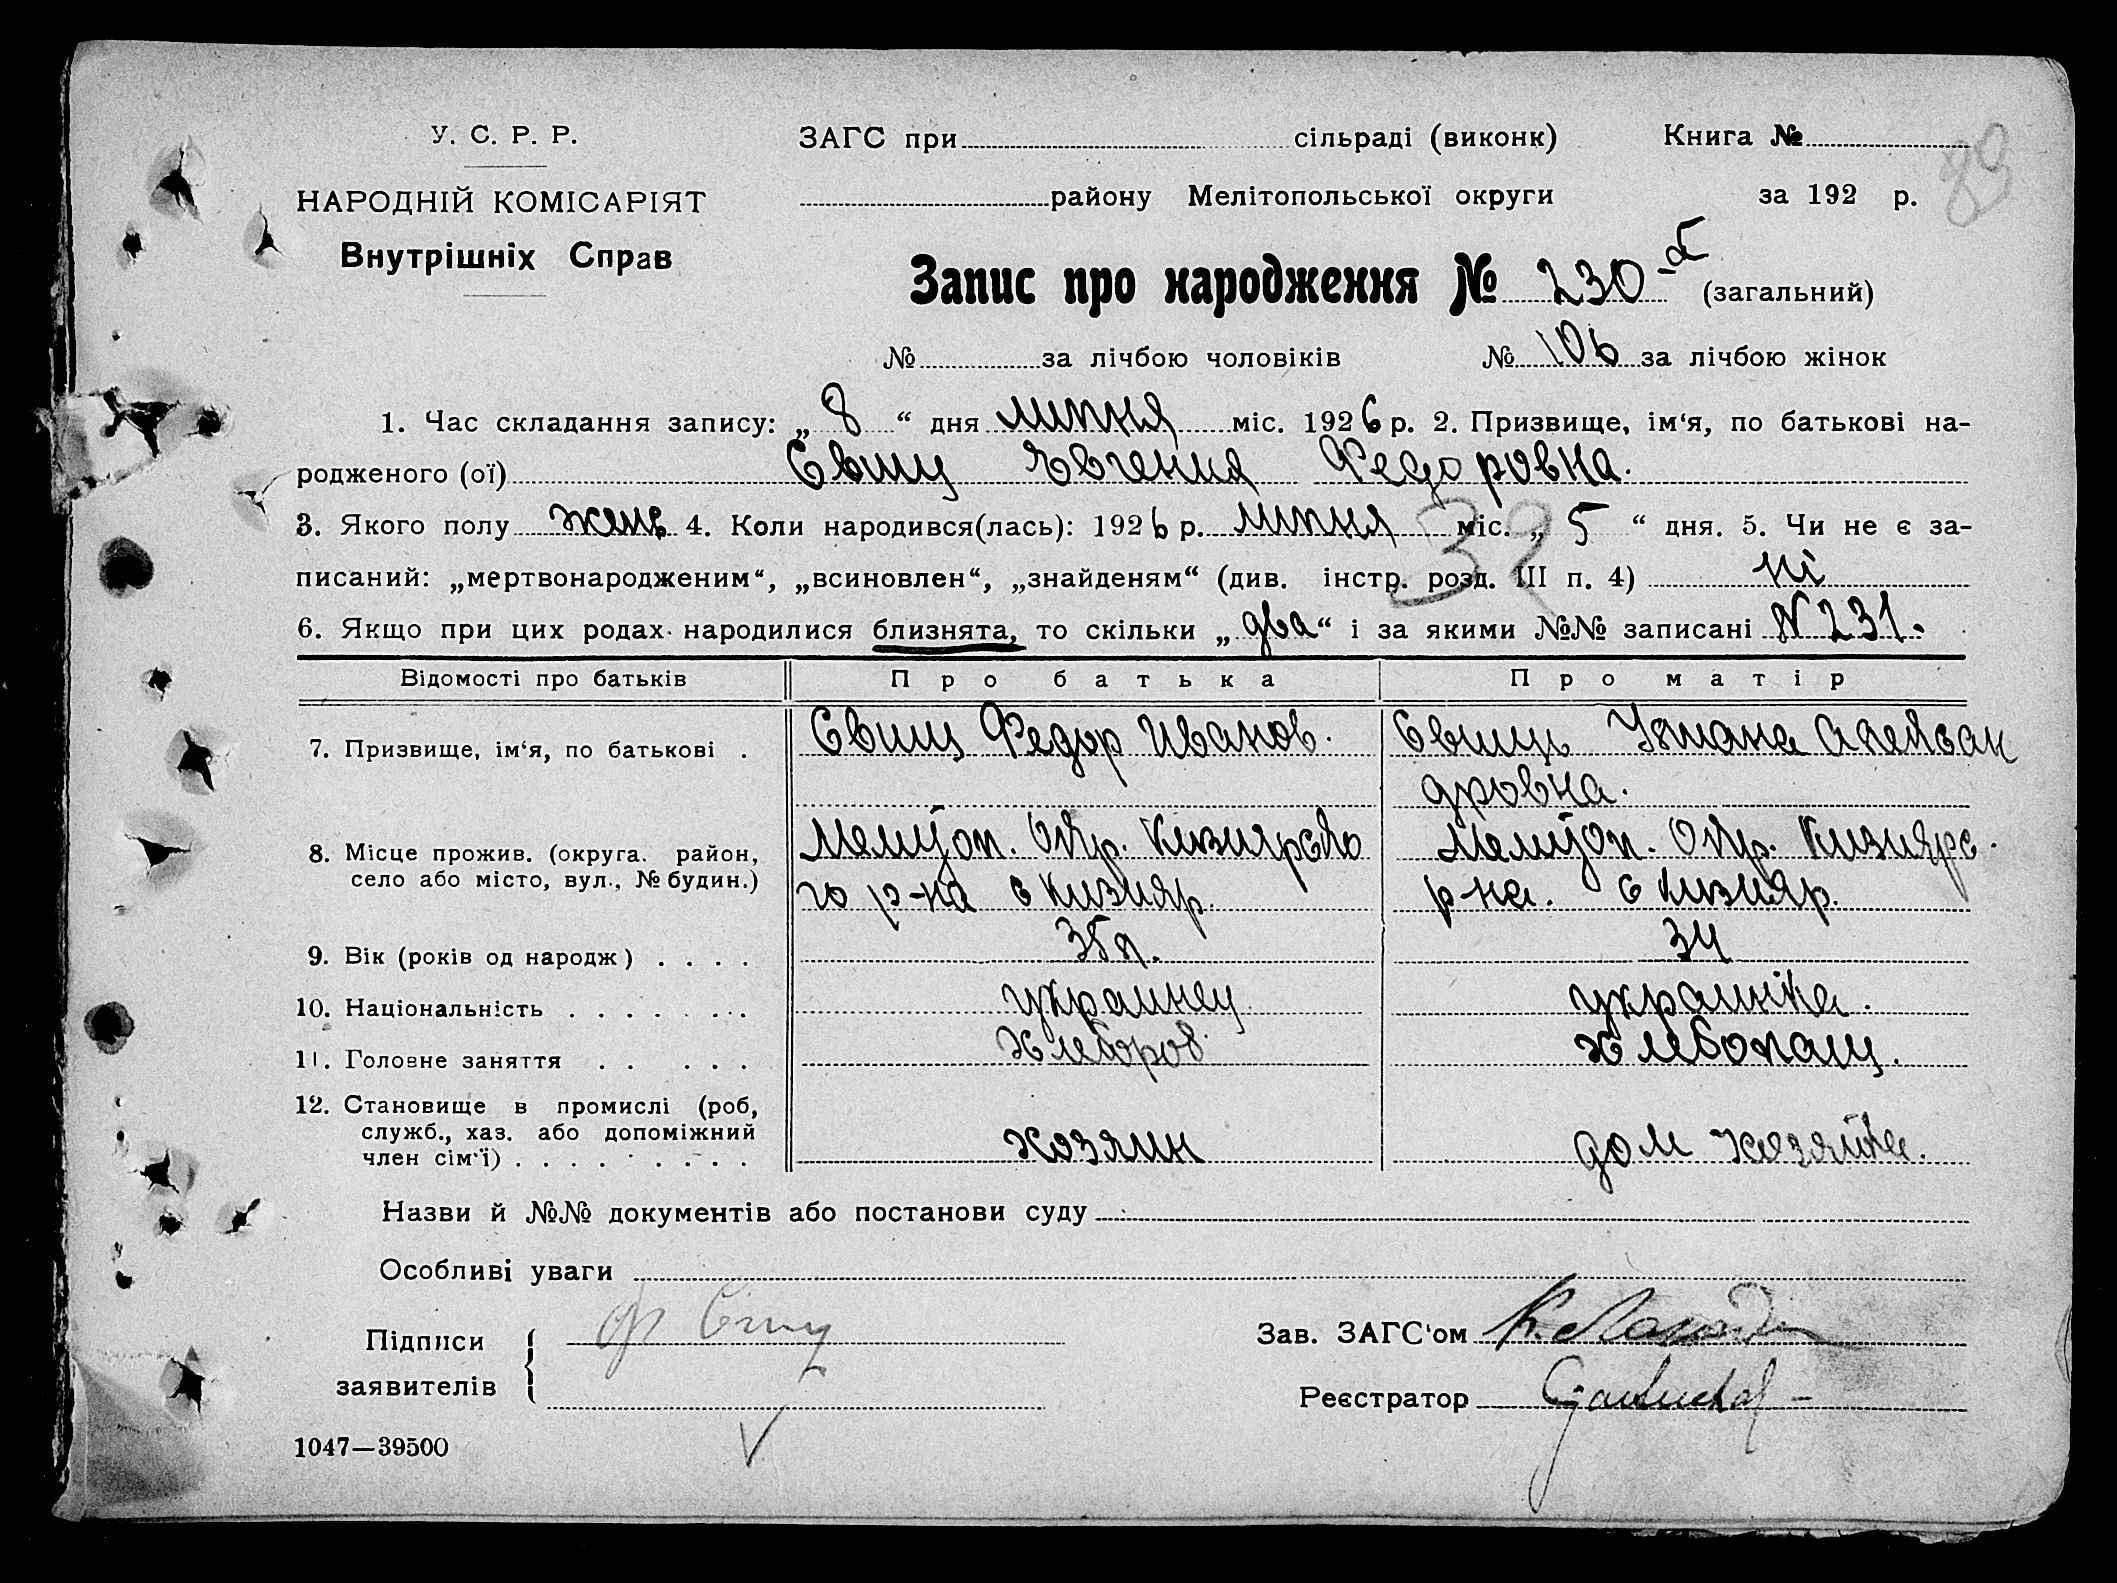 У. С. Р. Р.
НАРОДНІЙ КОМІСАРІЯТ
Внутрішніх Справ
ЗАГС при сільраді (виконк) Книга №
89
району Мелітопольської округи за 192 р.
Запис про народження № 230 (загальний)
№ за лічбою чоловіків № 106 за лічбою жінок
1. Час складання запису: „ 8 “ дня липня міс. 1926 р. 2. Призвище, ім‘я, по батькові на-
родженого (ої) Євшц Євгения Федоровна.
3. Якого полу жено 4. Коли народився(лась): 1926 р. липня міс. „ 5 “ дня. 5. Чи не є за-
32
писаний: „мертвонародженим“, „всиновлен“, „знайденям“ (див. інстр. розд. III п. 4) ні
6. Якщо при цих родах народилися близнята, то скільки „два“ і за якими №№ записані N 231.
Відомості про батьків Про батька Про матір
7. Призвище, ім‘я, по батькові . Федор Иванов. Ульяна Александровна.
8. Місце прожив. (округа. район, Мелітоп. Окр. Кизиярсько Мелітоп. Окр. Кизиярс.
село або місто, вул., № будин.) го р-на с Кизияр. р-на. с Кизияр.
9. Вік (років од народж) . . . . 35 л. 34
10. Національність . . . . . . . украинец украинка.
11. Головне заняття . . . . . хлебороб. хлебопащ.
12. Становище в промислі (роб,
служб., хаз. або допоміжний хозяин дом хозяйка.
член сім‘ї) . . . . . . . . .
Назви й №№ документів або постанови суду
Особливі уваги
Підписи
заявителів
Зав. ЗАГС‘ом
Реєстратор
1047—39500